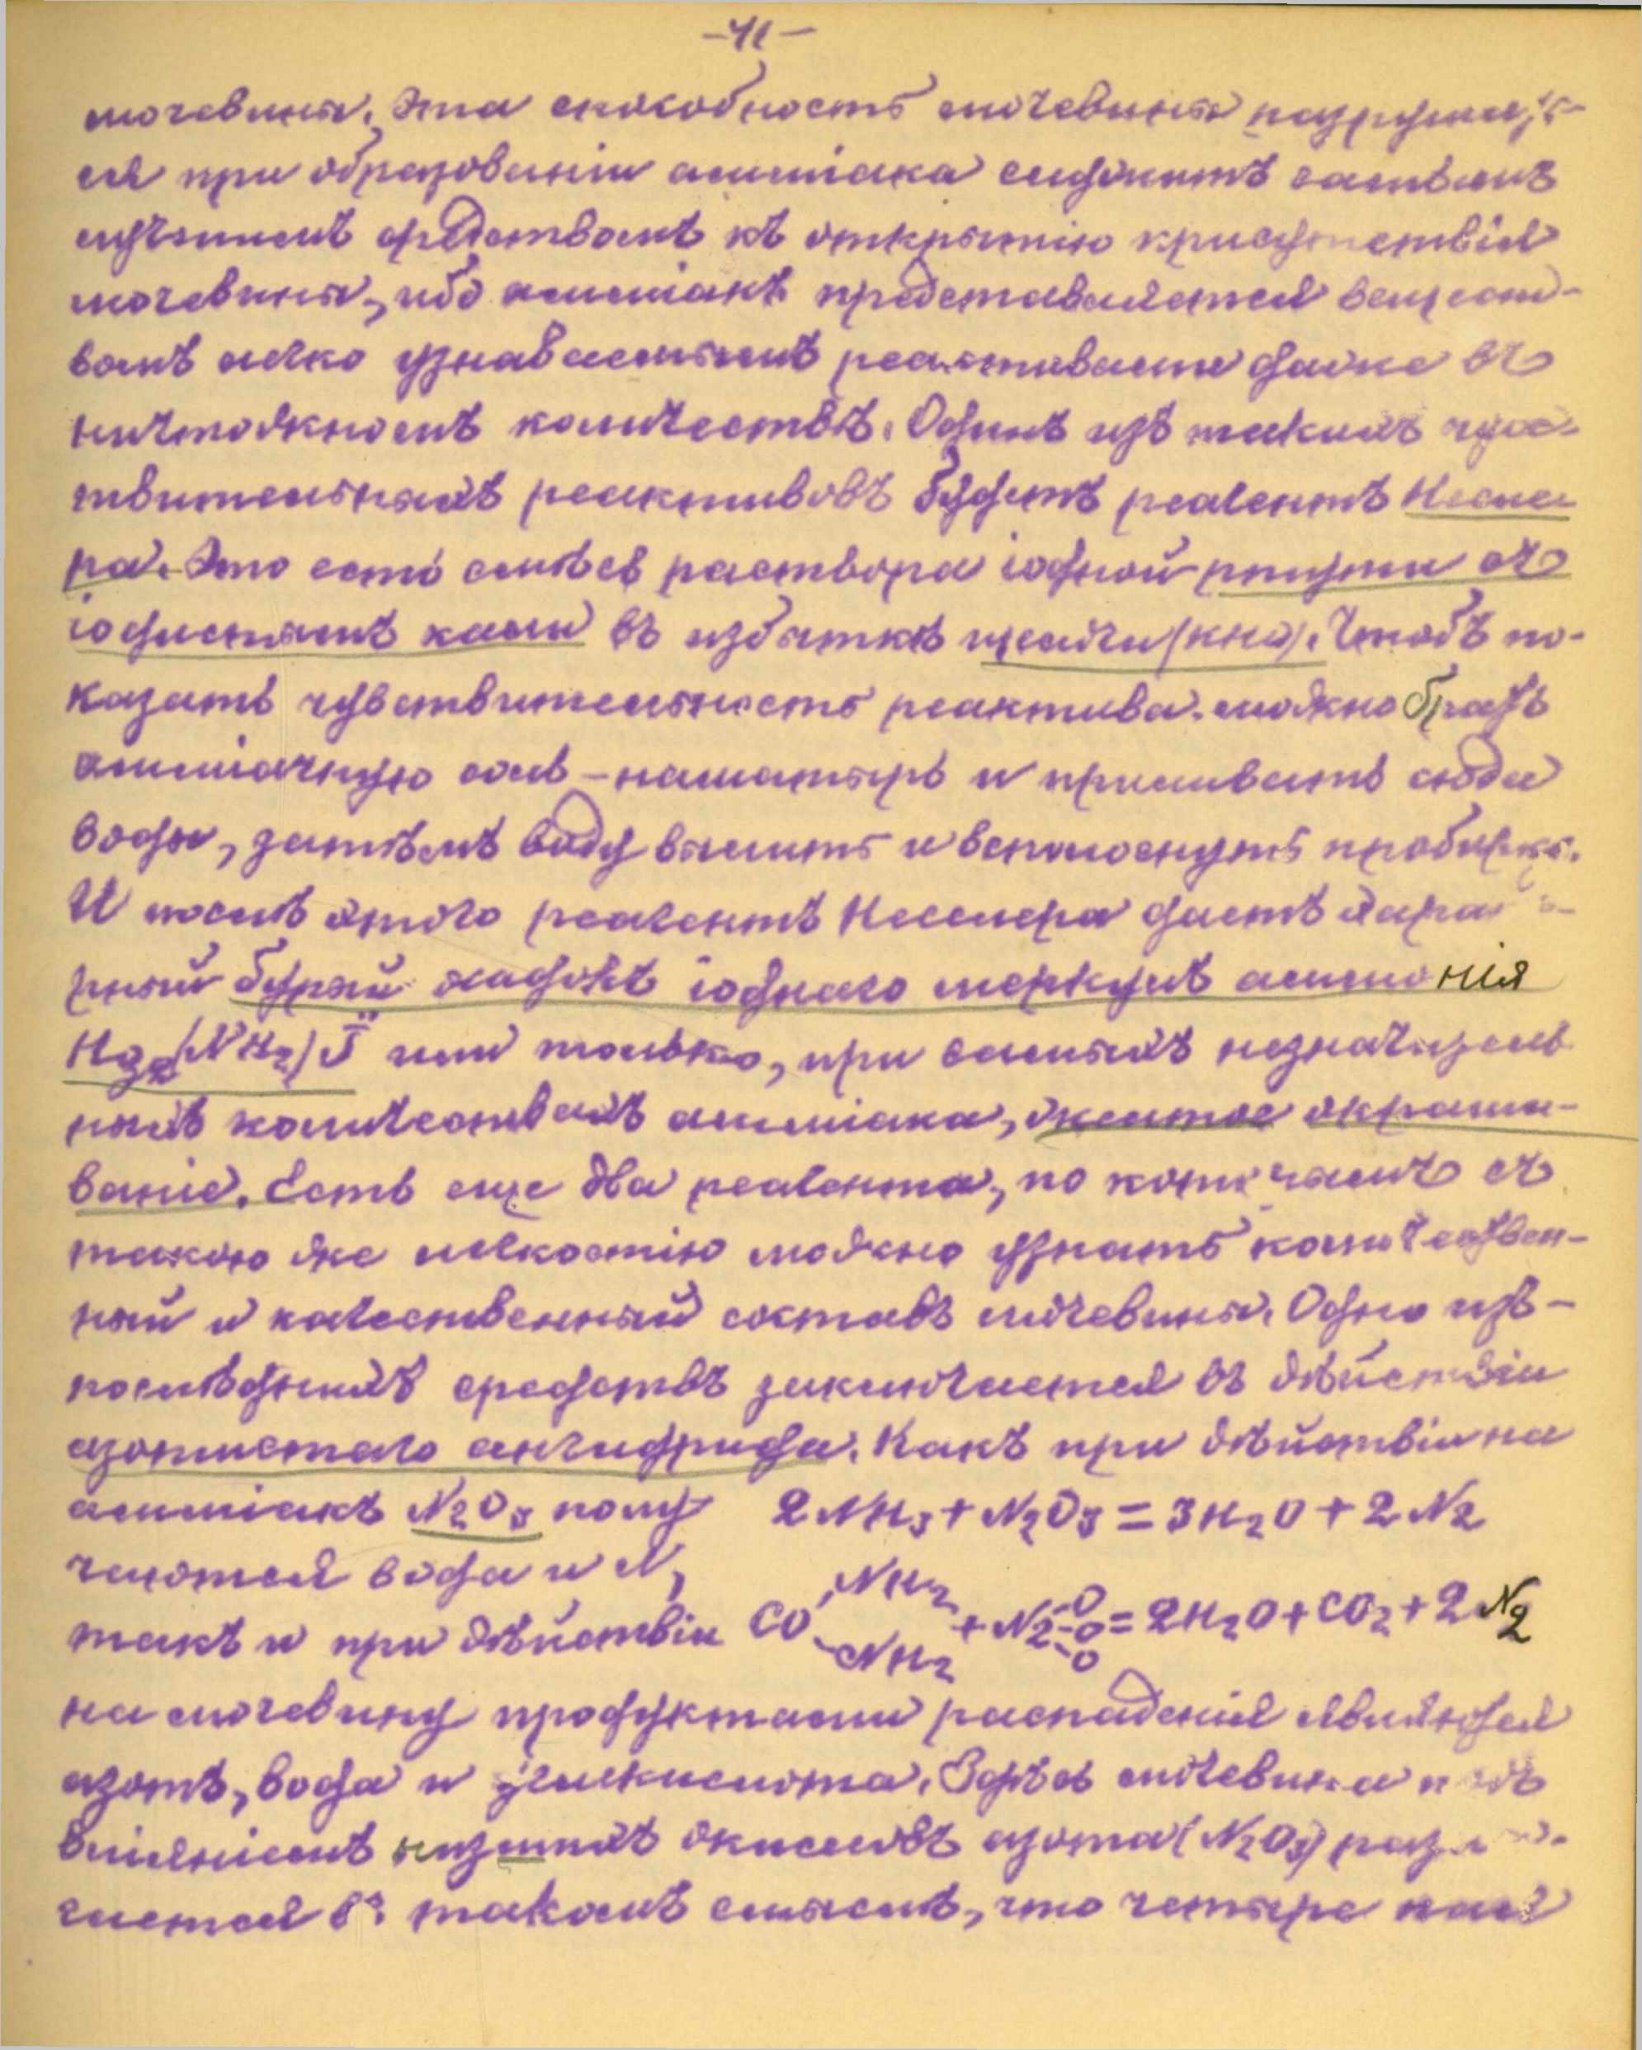 -41-
мочевины. Эта способность мочевины разрушать-
ся при образованіи амміака служитъ самымъ
лучшимъ средствомъ къ открытію присутствія
мочевины, ибо амміакъ представляется вещест-
вомъ легко узнаваемымъ реактивами даже въ
ничтожномъ количествѣ. Однимъ изъ такихъ чувс-
твительныхъ реактивовъ будетъ реагентъ Несле-
ра. Это есть смѣсь раствора іодной ртути съ
іодистымъ кали въ избыткѣ щелочи (КНО). Чтобъ по-
казать чувствительность реактива можно брать
амміачную соль – нашатырь и приливать сюда
воды, затѣмъ воду вылить и всполоснуть пробирку.
И послѣ этого реагентъ Несслера даетъ
рный бурый осадокъ іоднаго меркуръ аммонія
Hg2(NH2)J или только, при самыхъ незначитель
ныхъ количествахъ амміака, желтое окраши-
ваніе. Есть еще два реагента, по которымъ съ
такою же легкостію можно узнать количествен-
ный и качественный составъ мочевины. Одно изъ -
послѣднихъ средствъ заключается въ дѣйствіи
азотистаго ангидрида. Какъ при дѣйствіи на
амміакъ N2O3 полу 2NH3 + N2O3 = 3H2O + 2N2
чаются вода и N,
такъ и при дѣйствіи CO NH2 NH2 + N2 O O O = 2H2O + CO2 + 2N2
на мочевину продуктами распаденія являются
азотъ, вода и углекислота. Здѣсь мочевина подъ
вліяніемъ низшихъ окисловъ азота (N2O3)
гается въ такомъ смыслѣ, что четыре пая